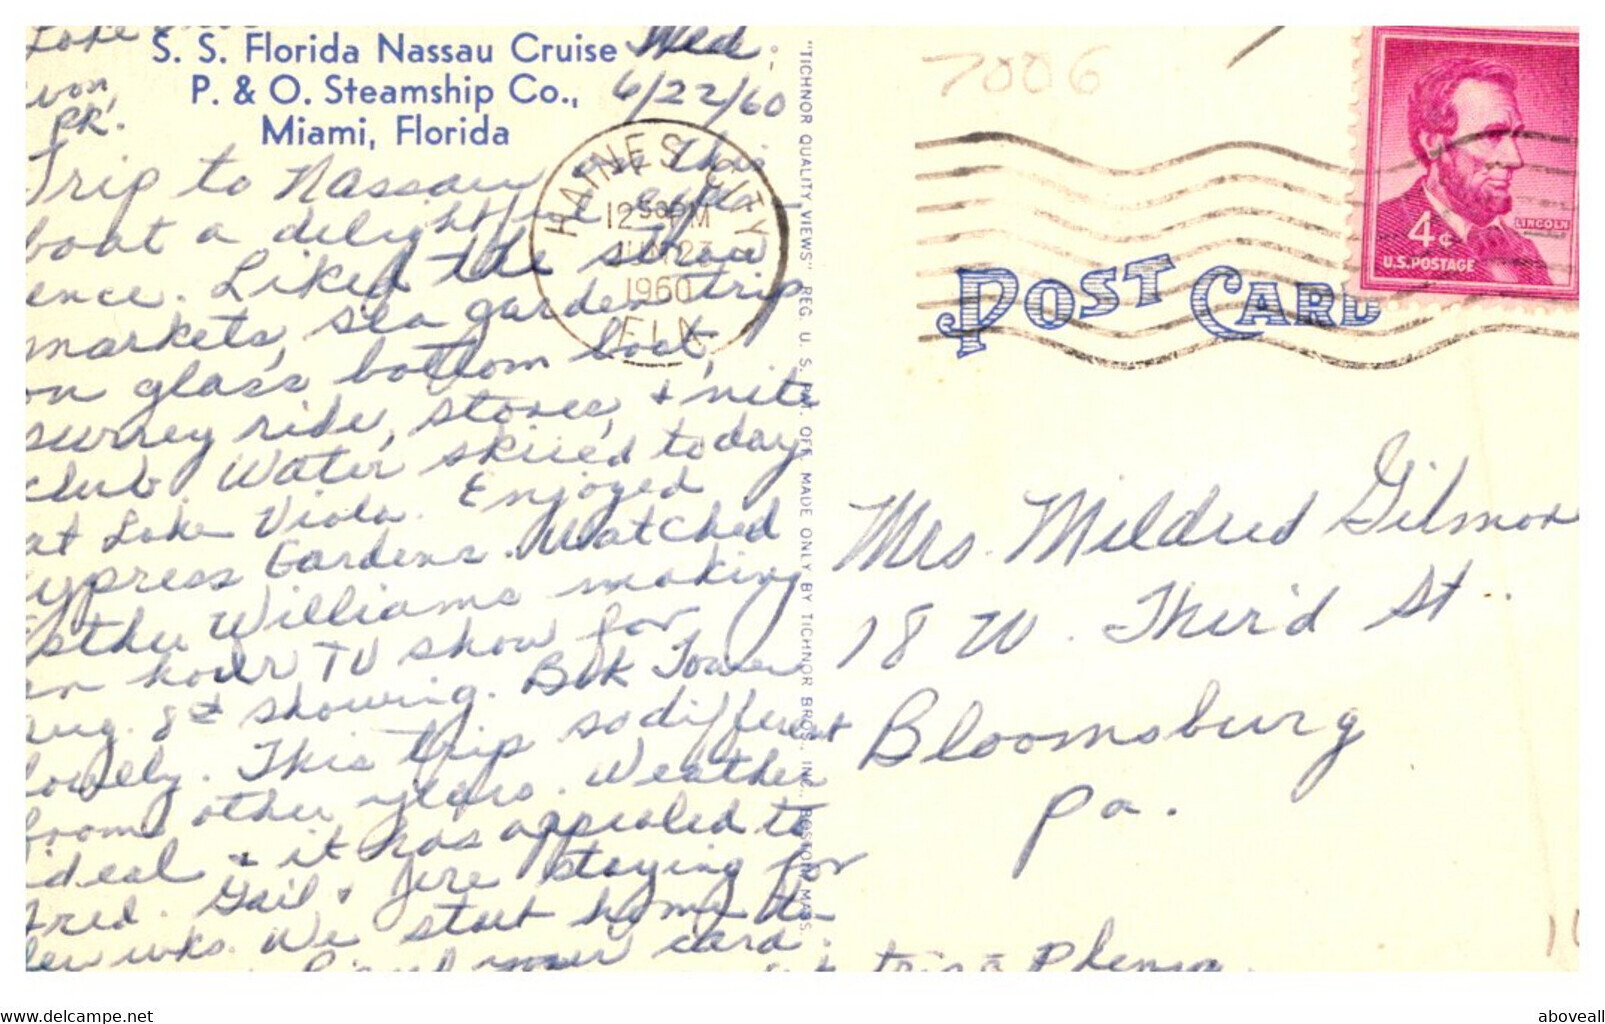 Lake
S. S. Florida Nassau Cruise
P. & O. Steamship Co.,
Miami, Florida
Wed.
6/22/60
von,
PR.
Trip to Nassau on this
boat a delightful
ence. Liked the straw
markets, sea garden trip
on glass bottom boat,
surrey ride, stores, & nite
club. Water skiied today
at Lake Viola. Enjoyed
ypress Gardens. Watched
Esther Williams making
an hour TV show for
Aug. 8th showing. Bok Tower
lovely. This trip so different
from other years. Weather
ideal & it has appealed to
Fred. Gail & Jere staying for
few wks. We start home
your card.
trip Phenom
HAINES CITY
12 30 PM
JUN 23
1960
FLA.
"TICHNOR QUALITY VIEWS" REG. U. S. PAT. OFF. MADE ONLY BY TICHNOR BROS., INC., BOSTON, MASS.
7006
4¢
LINCOLN
U.S. POSTAGE
POST CARD
Mrs. Mildred Gilmor
18 W. Third St.
Bloomsburg
Pa.
Visit www.delcampe.net
aboveall